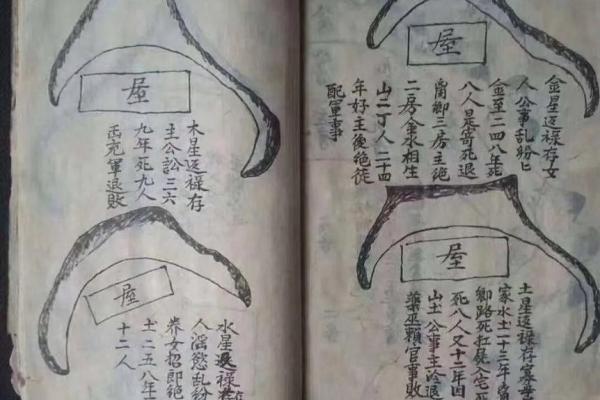 屋
金星逞祿存女
人公事乱紛匕
金至二四八年死
八人是寄死退
三房主絶
二房金水相生
山二丁人二十四
年好主後絶徒
配軍事
屋
土星逞祿存寡母
家水土二十三年
路死扛屍入宅死
死八人又十二年因
山土公事主冷退
藥巫賴官事敗
屋
木星逞祿存
主公訟三六
九年死九人
充軍退敗
屋
水星逞祿存
人淫慾乱紛
養女招郎絶
土二五八年
十二人